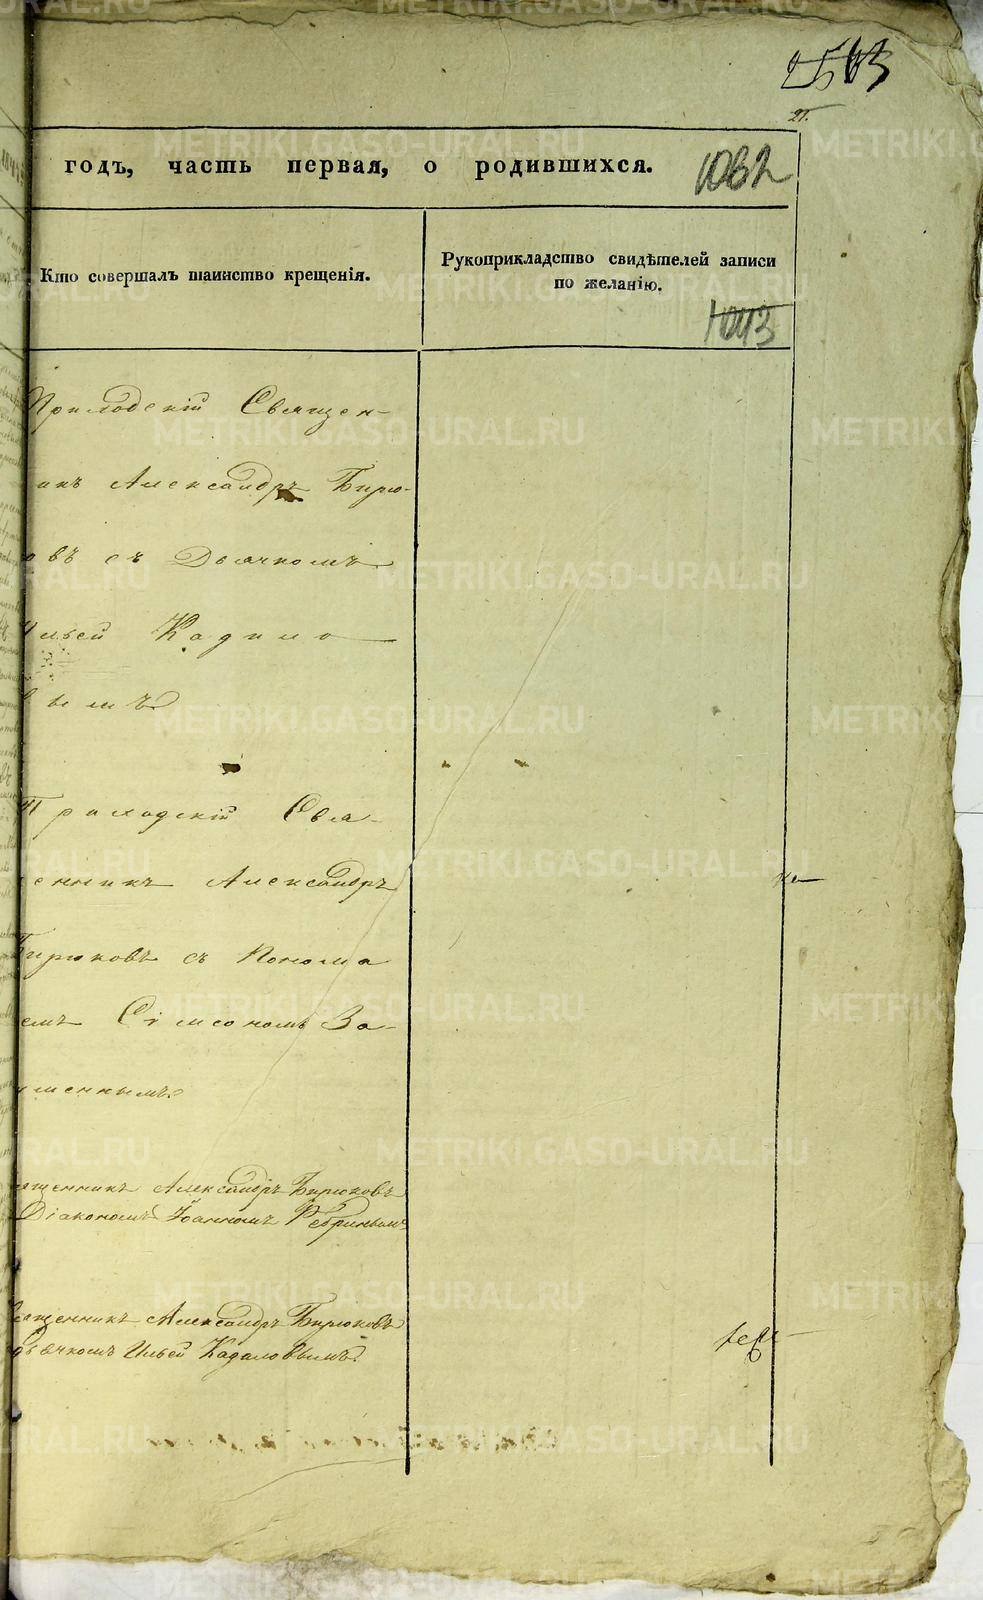 21.
годъ, часть первая, о родившихся.
1062
Кто совершалъ таинство крещенія.
Рукоприкладство свидѣтелей записи
по желанію.
1043
Приходскій Священ-
икъ Александръ Бирю-
овъ съ Дьячкомъ
Ильей Кадило
вымъ
Приходскій Свя-
енникъ Александръ
Бирюковъ съ Понома
емъ Сімеономъ За-
меннымъ.
ященникъ Александръ Бирюковъ
Діакономъ Іоанномъ Ребринымъ
Священникъ Александръ Бирюковъ
дьячкомъ Ильей Кадиловымъ.
METRIKI.GASO-URAL.RU